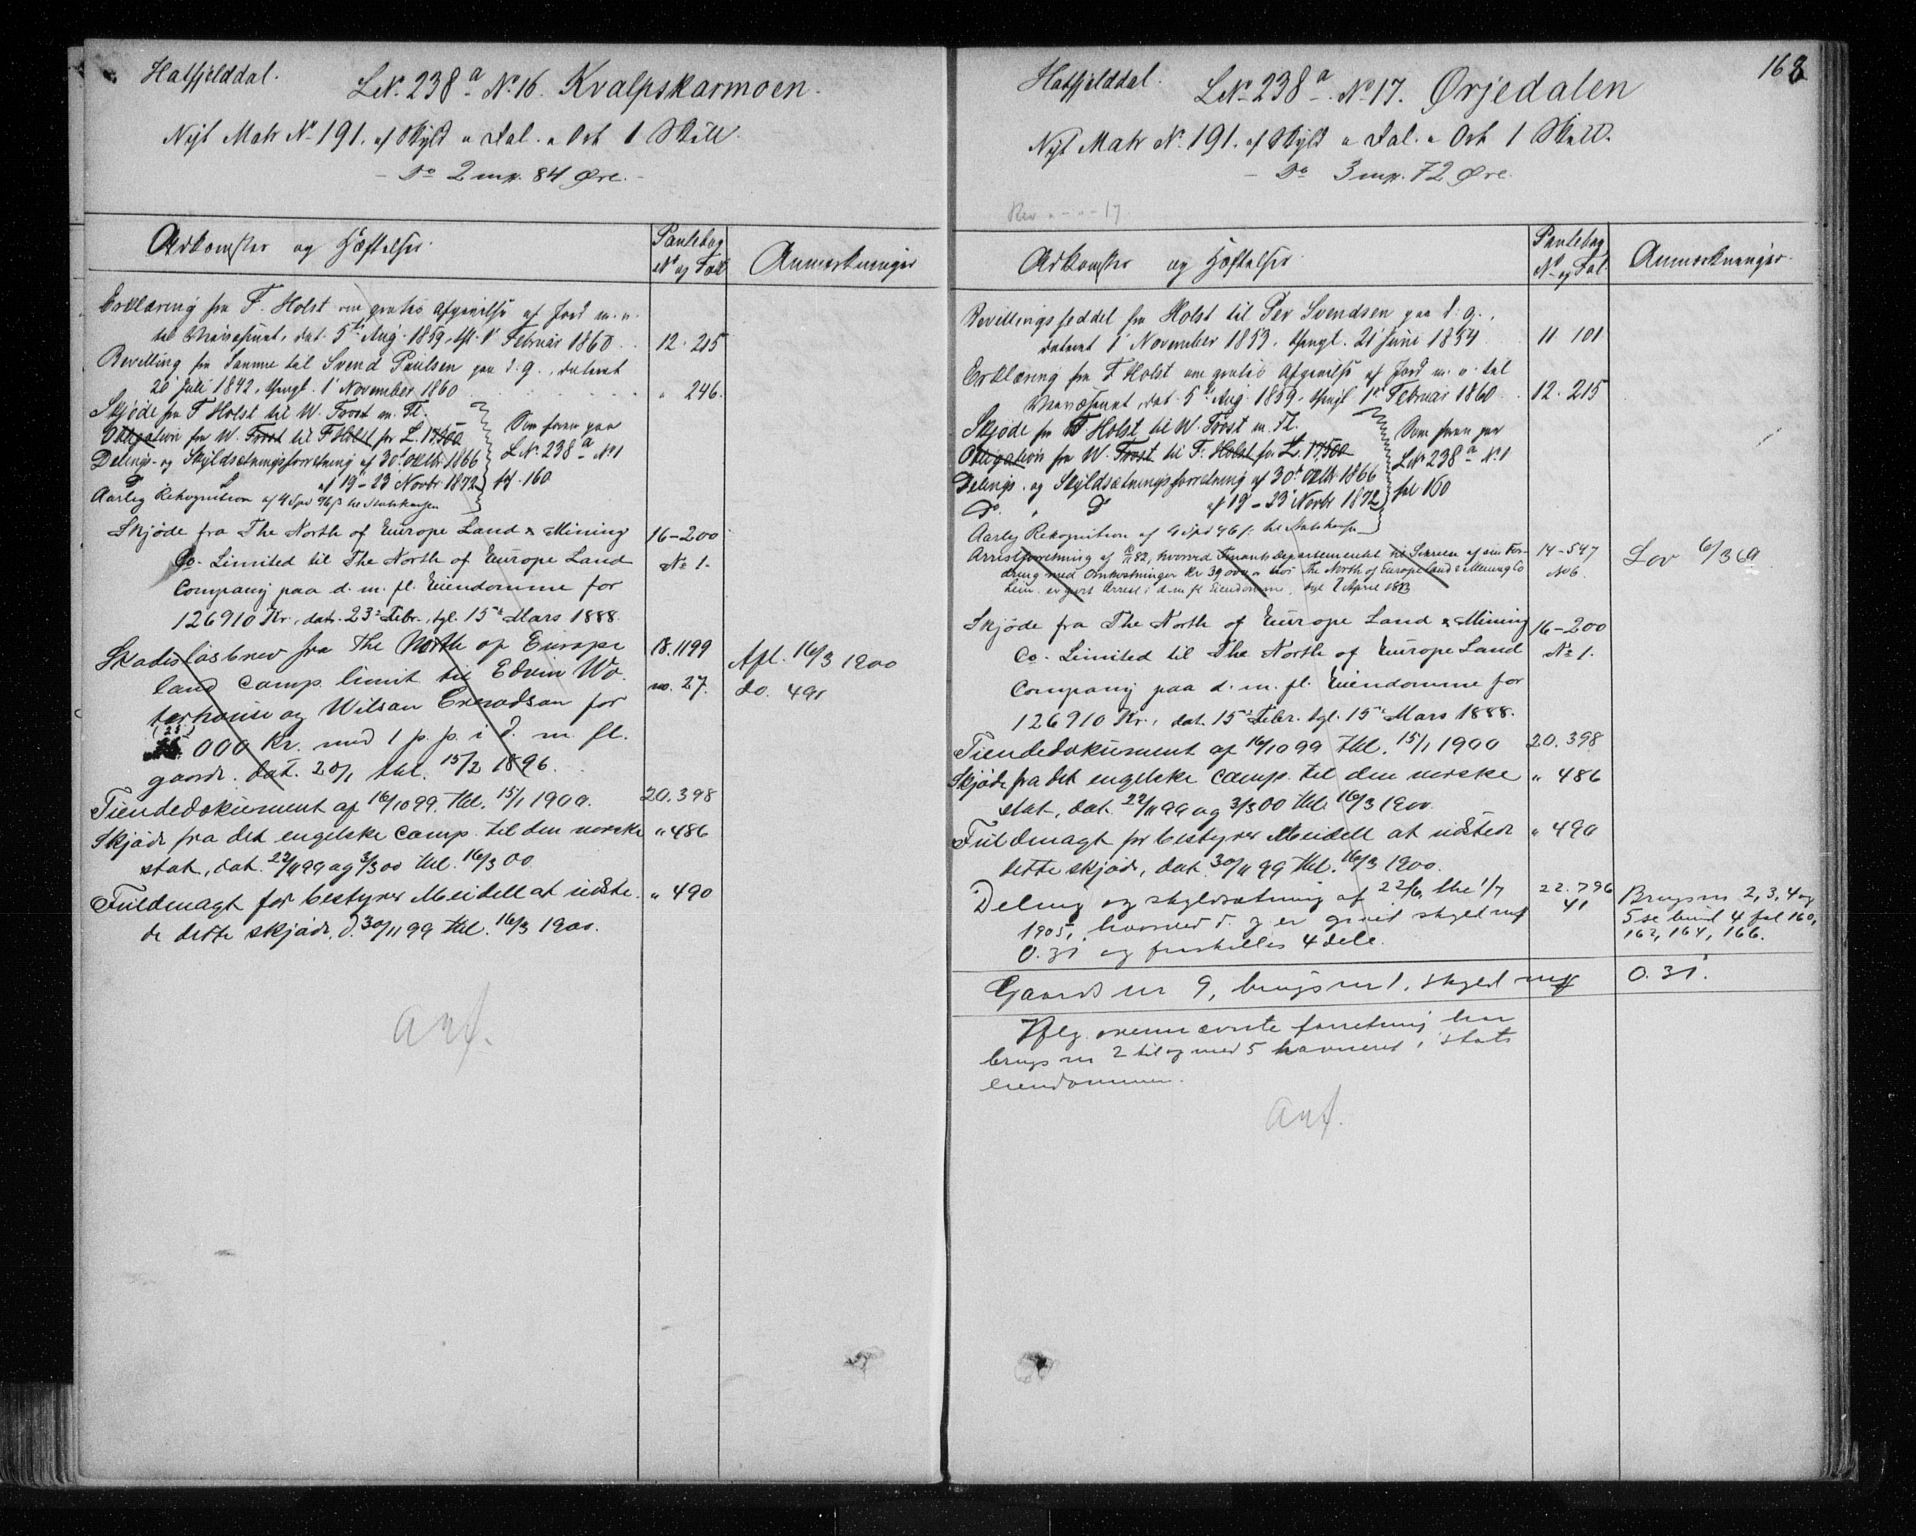 Hatfjelddal.
LNº 238ª Nº 16. Kvalpskarmoen.
Nyt Matr Nº 191. af Skyld " Dal. " Ort 1 Skill.
- Dº 2 mrk. 84 Øre. -
Adkomster og Hæftelser.
Pantebog
Nº og Fol
Anmærkninger
Erklæring fra F. Holst om gratis Afgivelse af Jord m. v.
til Veivæsenet, dat. 5te Aug. 1859, thl. 1' Februar 1860. 12. 215
Bevilling fra Samme til Svend Paulsen paa d. g., dateret
20 Juli 1842, thingl. 1' November 1860 " 246.
Skjøde fra F Holst til W. Frost m. Fl.
Obligation fra W. Frost til F Holst for L. 17500
Delings- og Skyldsætningsforretning af 30' Oktbr 1866
D af 19-23 Novbr 1872
Aarlig Rekognition af 4 Spd 96 s til Statskassen
Som foran paa
LNº 238ª Nº 1
fol. 160
Skjøde fra The North of Europe Land & Mining 16-200
Co. Limited til The North of Europe Land Nº 1.
Company paa d. m. fl. Eiendomme for
126910 Kr., dat. 23' Febr., tgl. 15' Mars 1888.
Skadesløsbrev fra the North of Europe 18. 1199 Afl. 16/3 1900
land comp. limit. til Edvin Wa- no. 27. do. 491
terhouse og Wilsan Crewdsan for
(25)
25 000 Kr. med 1 p. p. i d. m. fl.
gaarde. dat. 20/1 thl. 15/2 1896.
Tiendedokument af 16/10 99. thl. 15/1 1900. 20. 398
Skjøde fra det engelske comp. til den norske " 486
stat, dat. 22/11 99 og 3/3 00 thl. 16/3 00
Fuldmagt for bestyrer Meidell at udste- " 490
de dette skjøde, d. 30/11 99 thl. 16/3 1900.
Anf.
168
Hatfjelddal.
LNº 238ª Nº 17. Ørjedalen
Nyt Matr Nº 191. af Skyld " Dal. " Ort 1 Skill.
- Dº 3 mrk. 72 Øre.
Rev " - " - 17
Adkomster og Hæftelser.
Pantebog
Nº og Fol
Anmærkninger.
Bevillingsseddel fra Holst til Per Svendsen paa d. g.,
dateret 1 November 1853, thingl. 21' Juni 1854 11 101
Erklæring fra F Holst om gratis Afgivelse af Jord m. v. til
Veivæsenet, dat. 5te Aug 1859. thingl 1st Februar 1860. 12. 215
Skjøde fra F Holst til W. Frost m. Fl.
Obligation fra W. Frost til F. Holst for L. 17500
Delings- og Skyldsætningsforretning af 30' Oktbr 1866
Dº. " D af 19-23' Novbr 1872
Aarlig Rekognition af 4 Spd 96 s. til Statskassen
Som foran paa
LNº 238ª Nº 1
fol 160
Arrestforretning af 82, hvorved Finantsdepartementet til Sikkerhed af sin For- 14-547 Lov 6/3 69
dring med Omkostninger Kr 39,000 hos The North of Europe land & Mining Co Nº 6.
Lim. er gjort Arrest i d. m. fl Eiendomme, tgl 7 April 1883
Skjøde fra The North of Europe Land & Mining 16-200
Co. Limited til The North of Europe Land Nº 1.
Company paa d. m. fl. Eiendomme for
126910 Kr., dat. 15' Febr. tgl. 15' Mars 1888.
Tiendedokument af 16/10 99 thl. 15/1 1900 20. 398
Skjøde fra det engelske comp. til den norske " 486
stat, dat. 22/11 99 og 3/3 00 thl. 16/3 1900.
Fuldmagt for bestyrer Meidell at udstede " 490
dette skjøde, dat. 30/11 99 thl. 16/3 1900.
Deling og skyldsætning af 22/6, thl 1/7 22. 796 Brugsnr 2, 3, 4 og
1905, hvorved d. g er givet skyld mrk 41 5 se bind 4 fol 160,
0.31 og fraskilles 4 dele. 162, 164, 166.
Gaards nr 9, brugs nr 1, skyld mrk 0.31.
Iflg. ovennævnte forretning har
brugs nr 2 til og med 5 havneret i stats
eiendommen.
Anf.